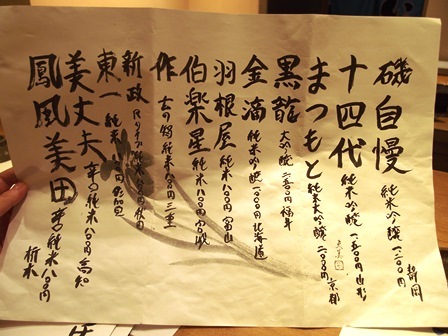 磯自慢 純米吟醸 一二〇〇円 静岡
十四代 純米吟醸 一五〇〇円 山形
まつもと 純米大吟醸 一二〇〇円 京都
黒龍 大吟醸 二五〇〇円 福井
金滴 純米吟醸 一〇〇〇円 北海道
羽根屋 純米 八〇〇円 富山
伯楽星 純米 八〇〇円 宮城
作 純米 八〇〇円 三重
新政 純米 八〇〇円 秋田
東一 純米 八〇〇円 佐賀
美丈夫 辛口 純米 八〇〇円 高知
鳳凰美田 辛口 純米 八〇〇円 栃木